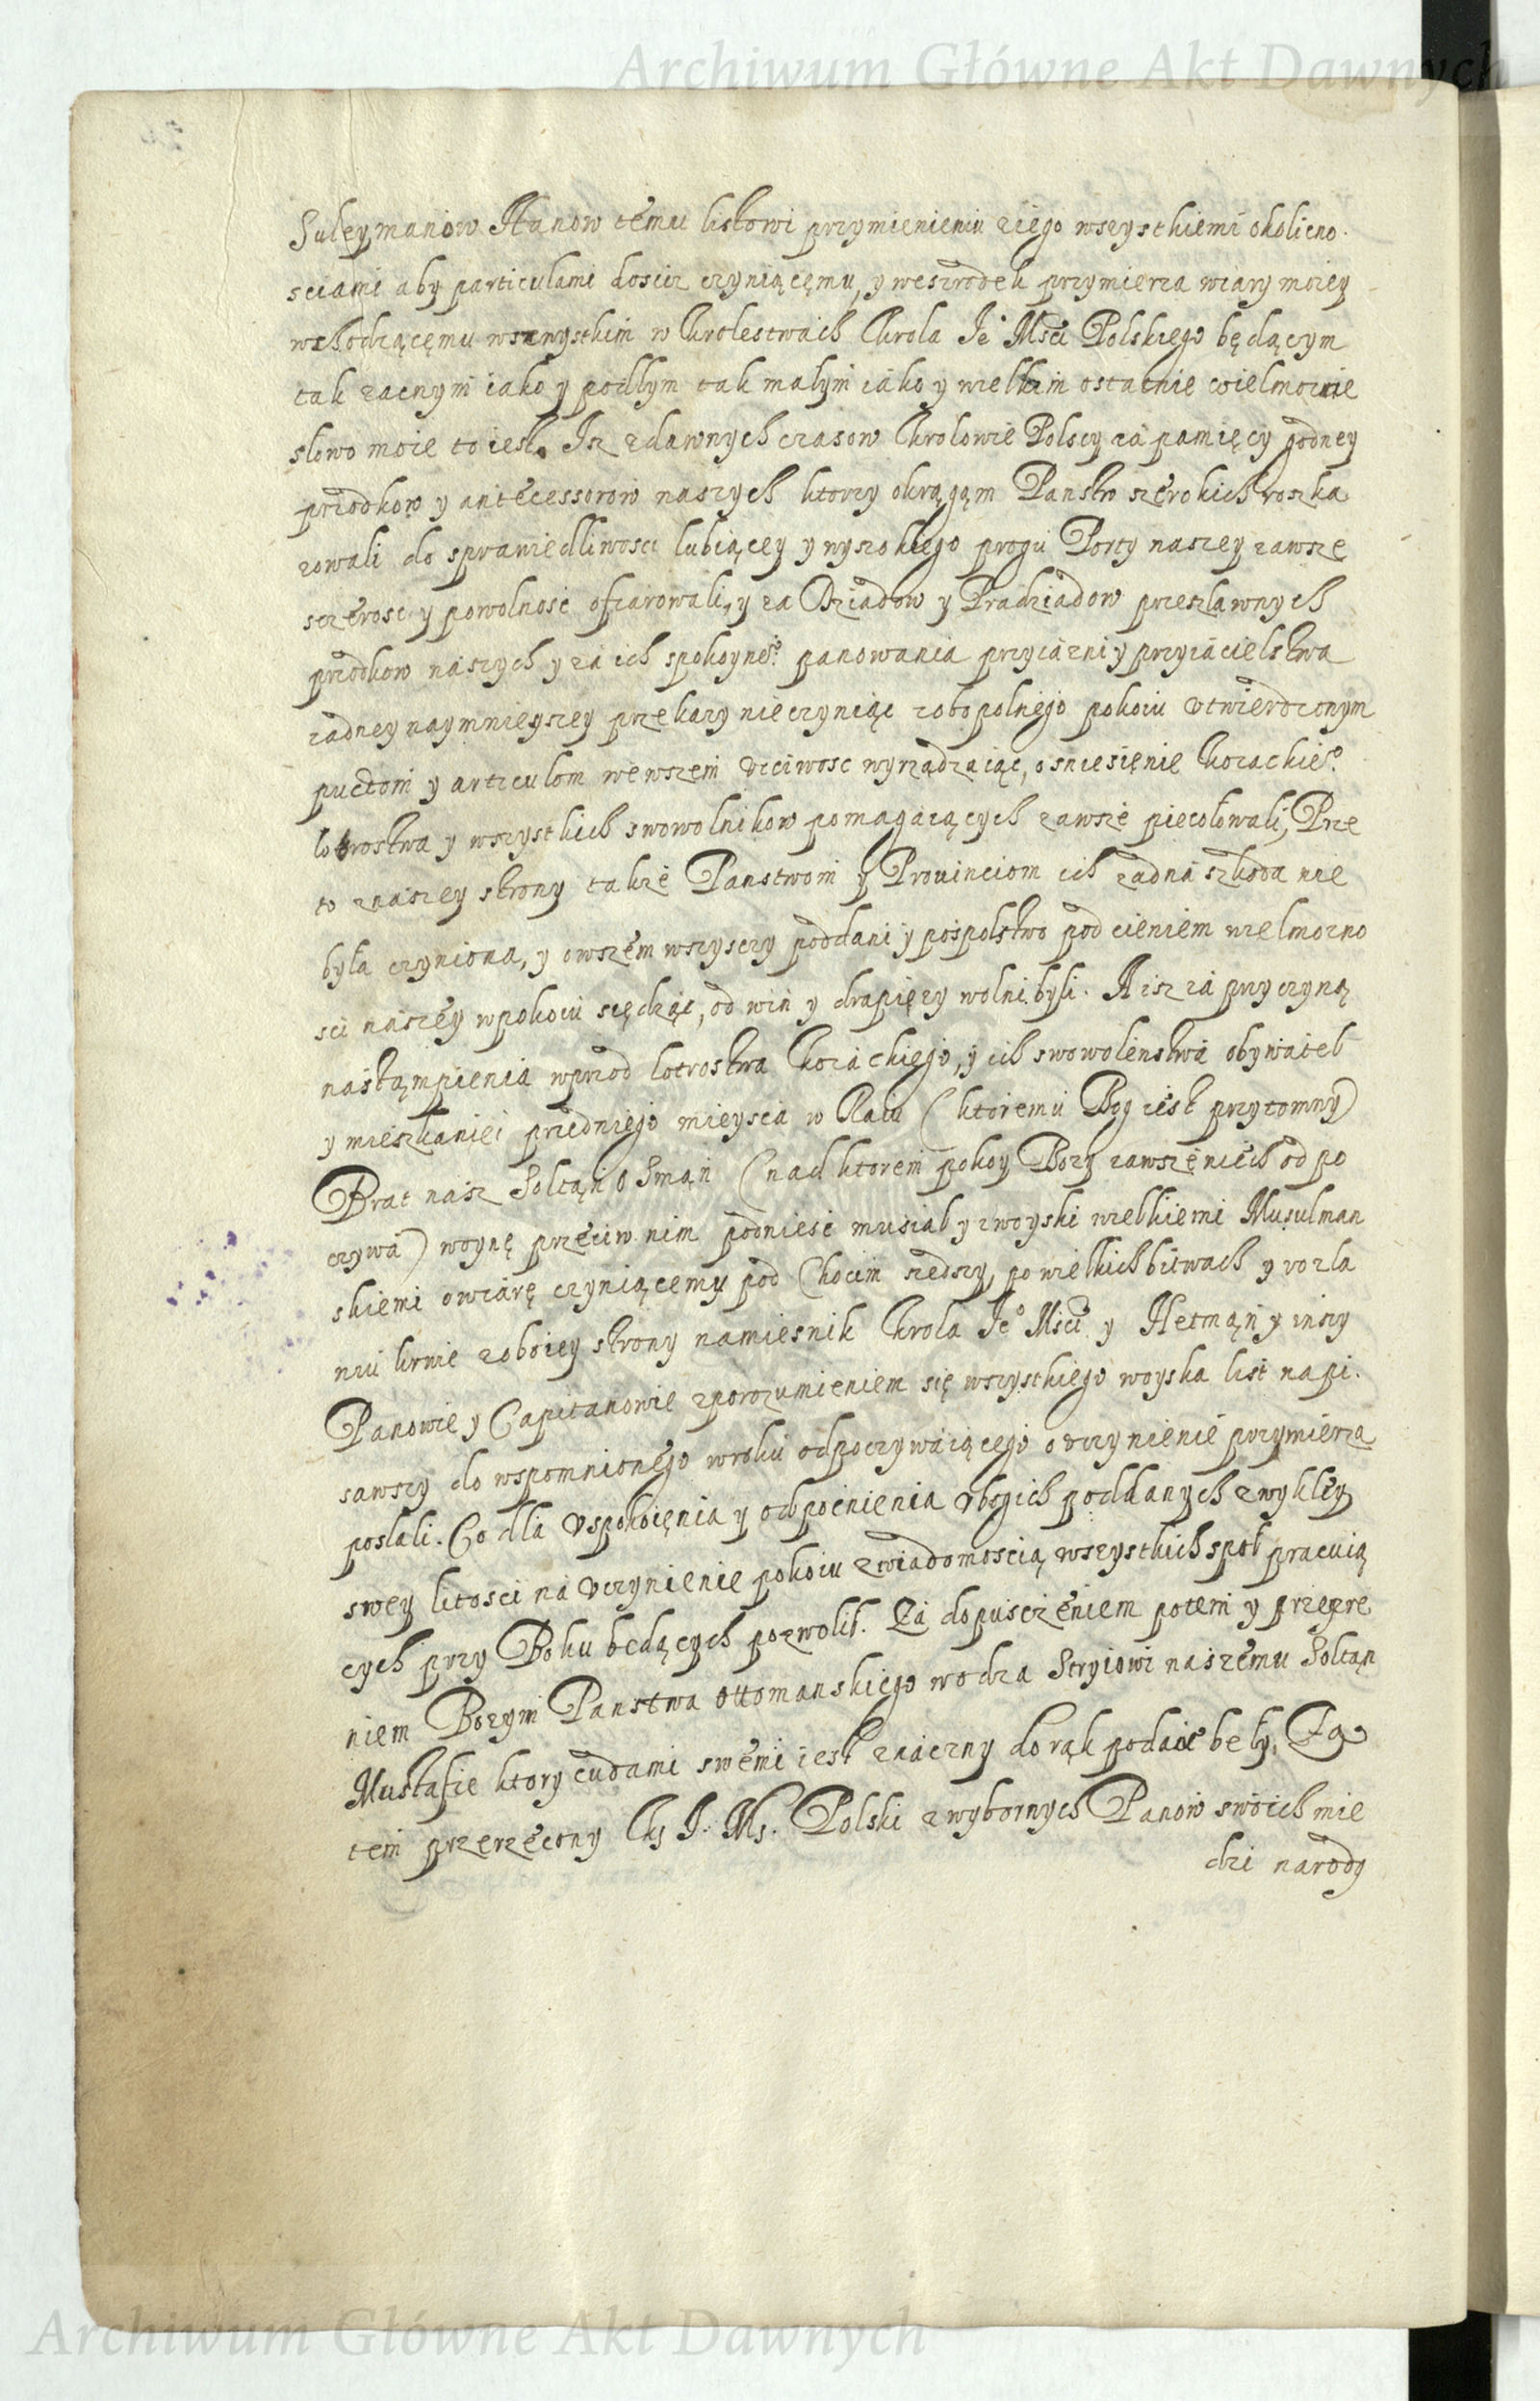 Archiwum Główne Akt Dawnych
Suleymanow Hanow temu listowi przymieniu ziego wszystkiemi okolicno
sciami aby particulami dosic czyniącęmu, y weszrodek przymierza wiary moiey
wchodzącęmu wszmystkim w Krolestwach Krola Je° Msci Polskiego będącym
tak zacnym iako y podłym tak małym iako y wielkim ostatnie wielmożnie
słowo moie to iest. Isz zdawnych czasow Krolowie Polscy za pamięcy godney
przodkow y antecessorow naszych ktorzy okrągąm Panstw szerokich roszka
zowali do sprawiedliwosci lubiącey y wysokiego progu Porty naszey zawsze
sczerosc y powolnosc ofiarowali, y za Dziadow y Pradziadow przesławnych
przodkow naszych y za ich spokoyne° panowania przyiazni y przyiacielstwa
zadney naymnieyszey przekazy nie czyniąc zobopolnego pokoiu vtwierdzonym
puctom y articulom wewszem vcciwosc wyrządzaiąc, o sniesięnie Kozackie°
lotrostwa y wszystkich swowolnikow pomagaiących zawsze piecołowali, Prze
to znaszey strony takze Panstwom y Prouinciom ich zadna szkoda nie
była czyniona, y owszem wszyscy poddani y pospolstwo pod cieniem wielmozno
sci naszey wpokoiu siędząc, od win y drapięzy wolni byli. A isz za przyczyną
nastąmpienia wprzod lotrostwa Kozackiego, y ich swowolenstwa obywatel
y mieszkaniec przedniego mieysca w Raiu (ktoremu Bog iest przytomny)
Brat nasz Soltąn Osmąn (nad ktorem pokoy Bozy zawszę niech odpo
czywa) woynę przeciw nim podniesc musiał y zwoyski wielkiemi Musulman
skiemi o wiarę czyniącemy pod Chocim szedszy, po wielkich bitwach y rozla
niu krwie zoboiey strony namiesnik Krola Je° Msci y Hetmąn y inszy
Panowie y Capitanowie zporozumieniem się wszystkiego woyska list napi
sawszy do wspomnionego wroku odpoczywaiącego o vczynienie przymierza
posłali. Co dla vspokoięnia y odpocnienia vbogich poddanych zwykłey
swey litosci na vczynienie pokoiu zwiadomoscią wszystkich społ pracuią
cych przy Boku będących pozwolił. Za dopuszczeniem potem y przeyre
niem Bozym Panstwa ottomanskiego wodza Stryiowi naszemu Soltąn
Mustafie ktory cudami swemi iest znaczny do rąk podaie beły, Za
tem przerzeczony Ks J. Ms. Polski zwybornych Panow swoich mie
dzi narody
Archiwum Główne Akt Dawnych